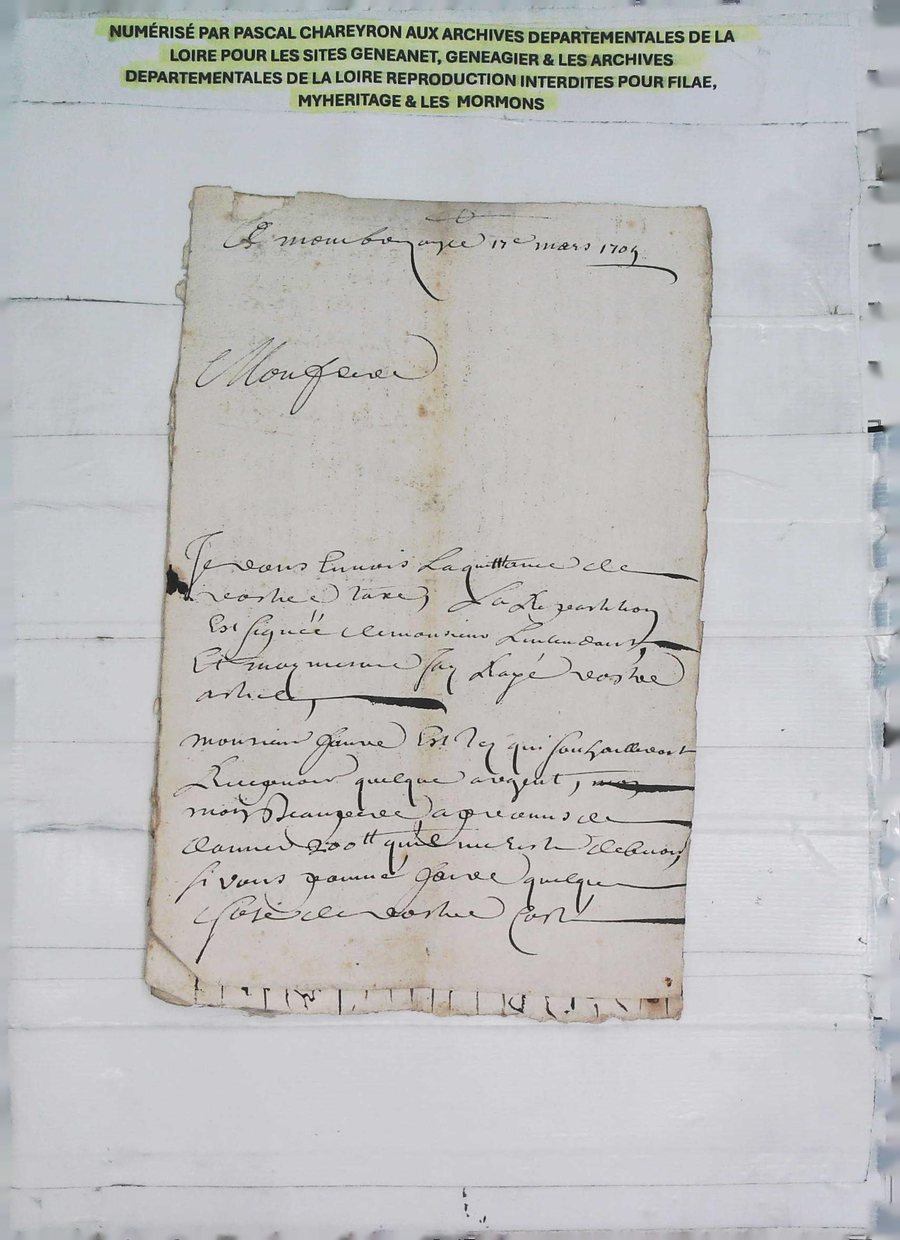 NUMÉRISÉ PAR PASCAL CHAREYRON AUX ARCHIVES DEPARTEMENTALES DE LA
LOIRE POUR LES SITES GENEANET, GENEAGIER & LES ARCHIVES
DEPARTEMENTALES DE LA LOIRE REPRODUCTION INTERDITES POUR FILAE,
MYHERITAGE & LES MORMONS
17e mars 1705
Je vous Envois La quittance de
vostre taxe, La Repartition
Est signéé de monsieur Lintendant,
Et moy mesme Jay Rayé vostre
article,
monsieur faure Est Icy qui souhaitteroit
Recepvoir quelque argent,
mon Beaufrere a promis de
donner 200tt quil me reste debvoir,
si vous pouvié faire quelque
chose de vostre costé